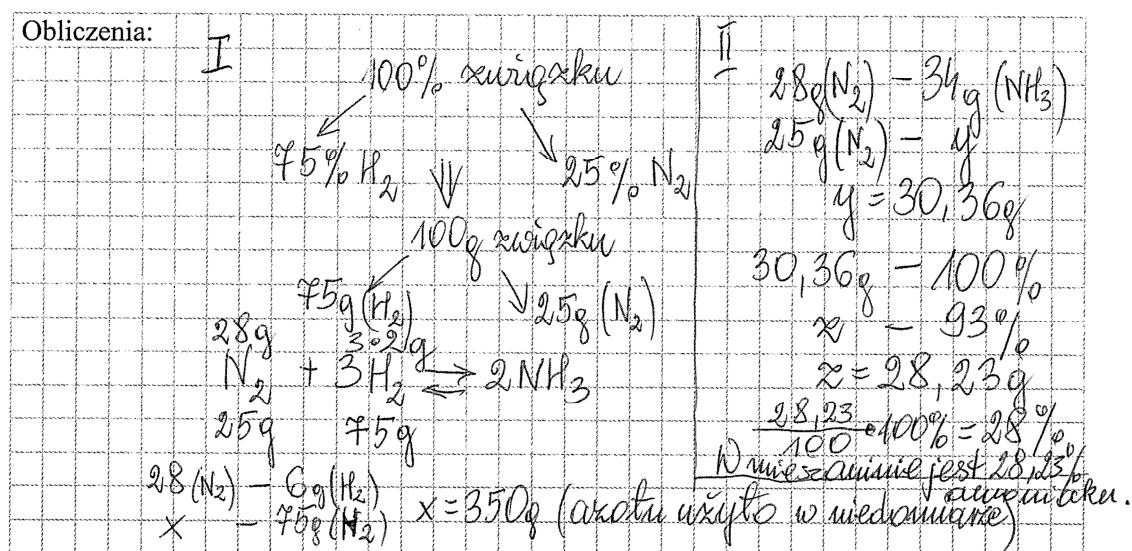 Obliczenia:
I
100% związku
75% H₂ 25% N₂
100g związku
75g (H₂) 25g (N₂)
28g 3·2g
N₂ + 3H₂ ⇄ 2NH₃
25g 75g
28(N₂) – 6g(H₂)
x – 75g(H₂) x = 350g (azotu użyto w niedomiarze)
II
28g(N₂) – 34g (NH₃)
25g(N₂) – y
y = 30,36g
30,36g – 100%
z – 93%
z = 28,23g
28,23/100 • 100% = 28%
W mieszaninie jest 28,23%
amoniaku.